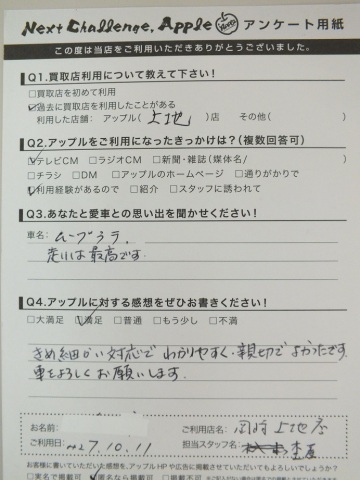 Next Challenge, Apple アンケート用紙
この度は当店をご利用いただきありがとうございました。
Q1.買取店利用について教えて下さい!
□買取店を初めて利用
□過去に買取店を利用したことがある
利用した店舗: アップル( 上地 )店 その他( )
Q2.アップルをご利用になったきっかけは?(複数回答可)
□テレビCM □ラジオCM □新聞・雑誌(媒体名/ )
□チラシ □DM □アップルのホームページ □通りがかりで
□利用経験があるので □紹介 □スタッフに誘われて
Q3.あなたと愛車との思い出を聞かせてください!
車名: ムーブラテ
走りは最高です
Q4.アップルに対する感想をぜひお書きください!
□大満足 □満足 □普通 □もう少し □不満
きめ細かい対応でわかりやすく・親切でよかったです
車をよろしくお願いします.
お名前: ご利用店名: 岡崎上地店
ご利用日: 27.10.11 担当スタッフ名:
お客様に書いていただいた感想を、アップルHPや広告に掲載させていただいてもよろしいでしょうか?
□実名で掲載可 □匿名なら掲載可 □掲載不可